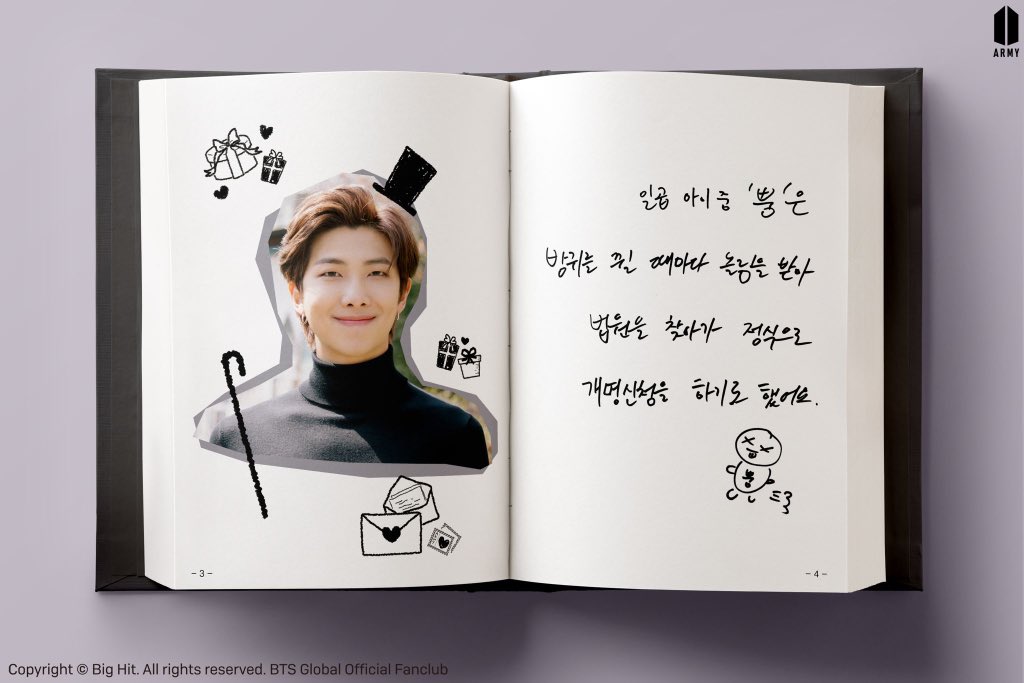 ARMY
일곱 아이 중 '뿡'은
방귀를 뀔 때마다 놀림을 받아
법원을 찾아가 정식으로
개명신청을 하기로 했어요.
뿡
- 3 -
- 4 -
Copyright © Big Hit. All rights reserved. BTS Global Official Fanclub